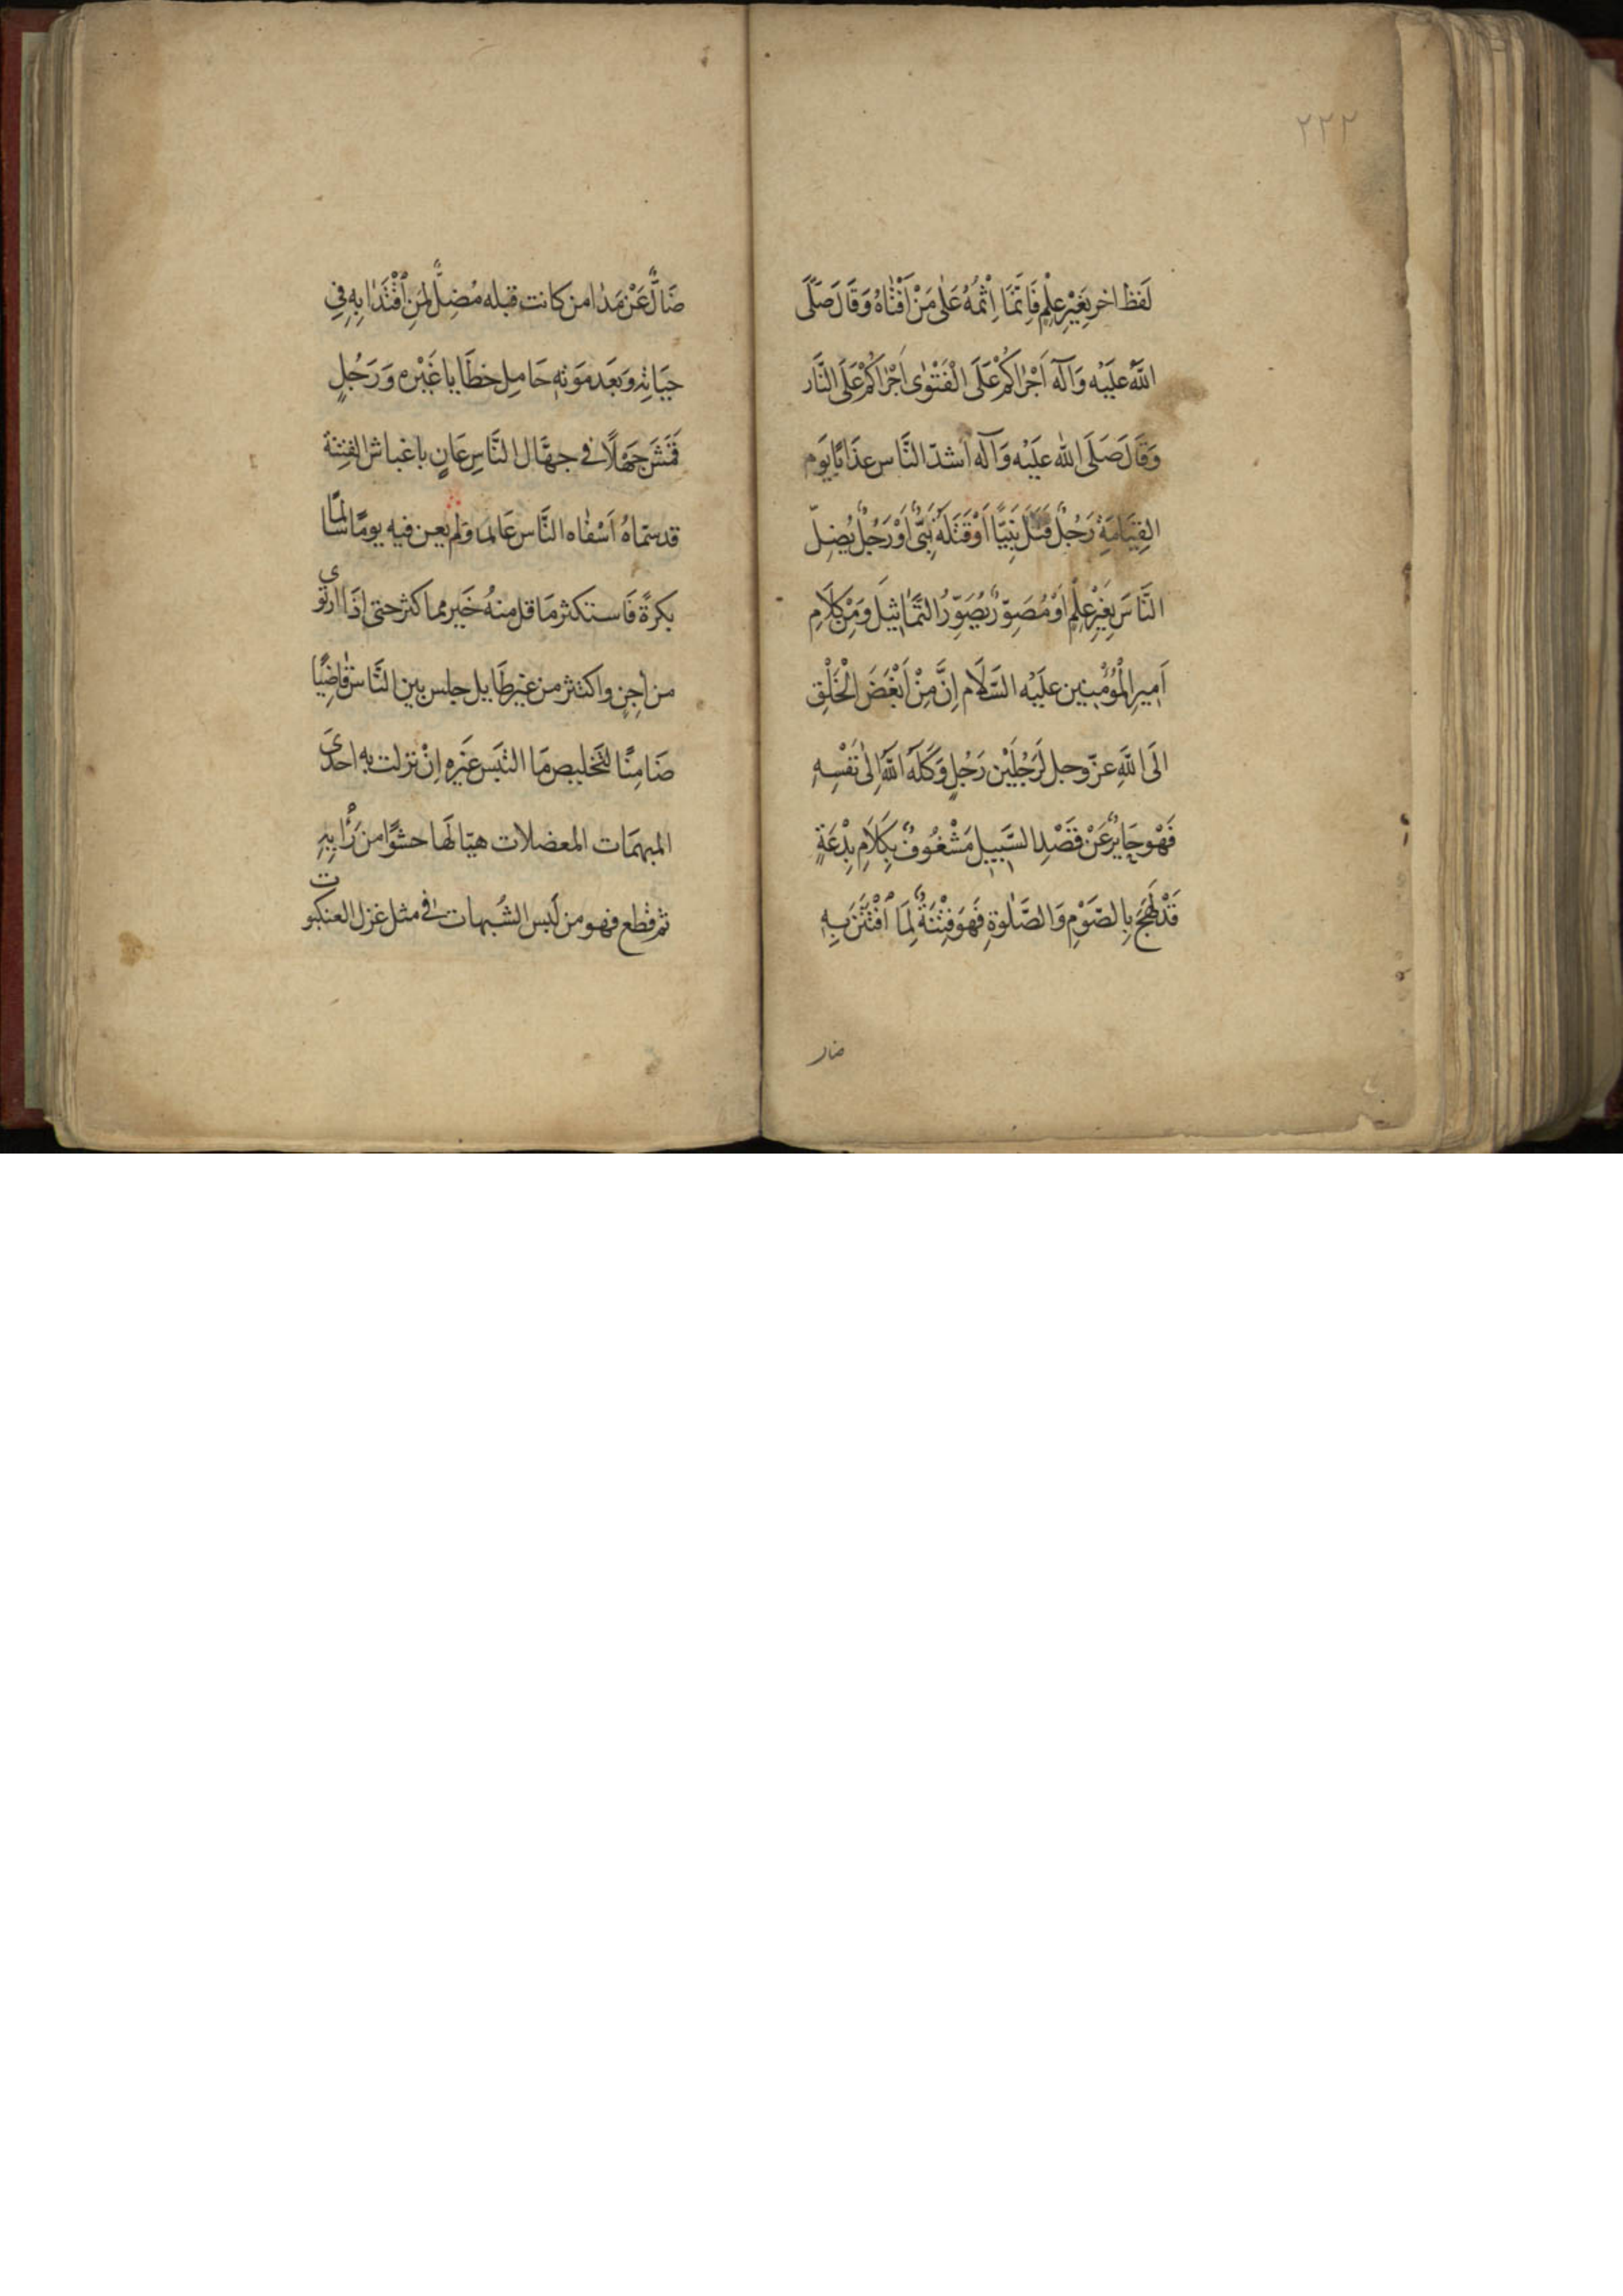 ٢٢٢
لَفظ اخر بِغَيْرِ عِلْمٍ فَاِنَّمَا اِثْمُهُ عَلٰى مَنْ اَفْتٰاهُ وَقَالَ صَلَّى
اللّٰهُ علَيْه وَآلَه اَجْرَاكُمْ عَلَى الْفَتْوٰى اَجْرَاكُمْ عَلَى النَّار
وَقَالَ صَلَى الله علَيْه وَآلَه اَشدّ النَّاس عذَابًا يَوم
القِيَامَةِ رَجُلٌ قَتَلَ نَبِيًّا اَوْ قَتَلَهُ نَبِىٌّ اَوْ رَجُلٌ يُضِلّ
النَّاسَ بِغَيْرِ عِلْمٍ اَوْ مُصَوِّرٌ يُصَوِّرُ التَّمَاثِيلَ وَمِنْ كَلَامِ
اَمِيرِ الْمُؤْمِنِين علَيْه السَّلَام اِنَّ مِنْ اَبْغَضَ الْخَلْقِ
الَى اللّٰهِ عزّ وجل لَرَجُلَيْن رَجُلٍ وَكَلَهُ اللّٰهُ اِلٰى نَفْسِهِ
فَهْو جَايِرٌ عَنْ قَصْدِ السَّبِيلِ مَشْغُوفٌ بِكَلَامِ بِدْعَةٍ
قَدْ لَهِجَ بِالصَّوْمِ وَالصَّلٰوةِ فَهْوَ فِتْنَةٌ لِمَا اُفْتُتِنَ بِهِ
ضال
ضَالٌّ عَنْ هَدٰا من كانت قبله مُضِلٌّ لِمَنِ اُقْتُدَا بِهِ فِي
حيَاتِهِ وَبَعَد مَوَتِهِ حَامِل خطَايا غَيْرِه وَرَجُلٍ
قَمَشَ جَهْلًا في جهَّال النَّاسِ عَانٍ باغباش الفتنة
قد سمّاهُ اَشْبٰاه النَّاس عَالما وَلم يعن فيه يومًا سَالمًا
بكرةً فَاستكثر مَا قل منهُ خَير مما كثر حتى اِذَا ارتوى
من اٰجِنٍ واكتثر من غير طَايل جلس بين النَّاس قَاضِيًا
ضَامِنًا لتَخليصِ مَا التبَس غيَره اِنْ نزلت به احدَى
المبهمَات المعضلات هيّا لَها حشوًا من رَأيِهِ
ثم قَطع فهو من لَبس الشُبهات في مثل غزل العنكبوت